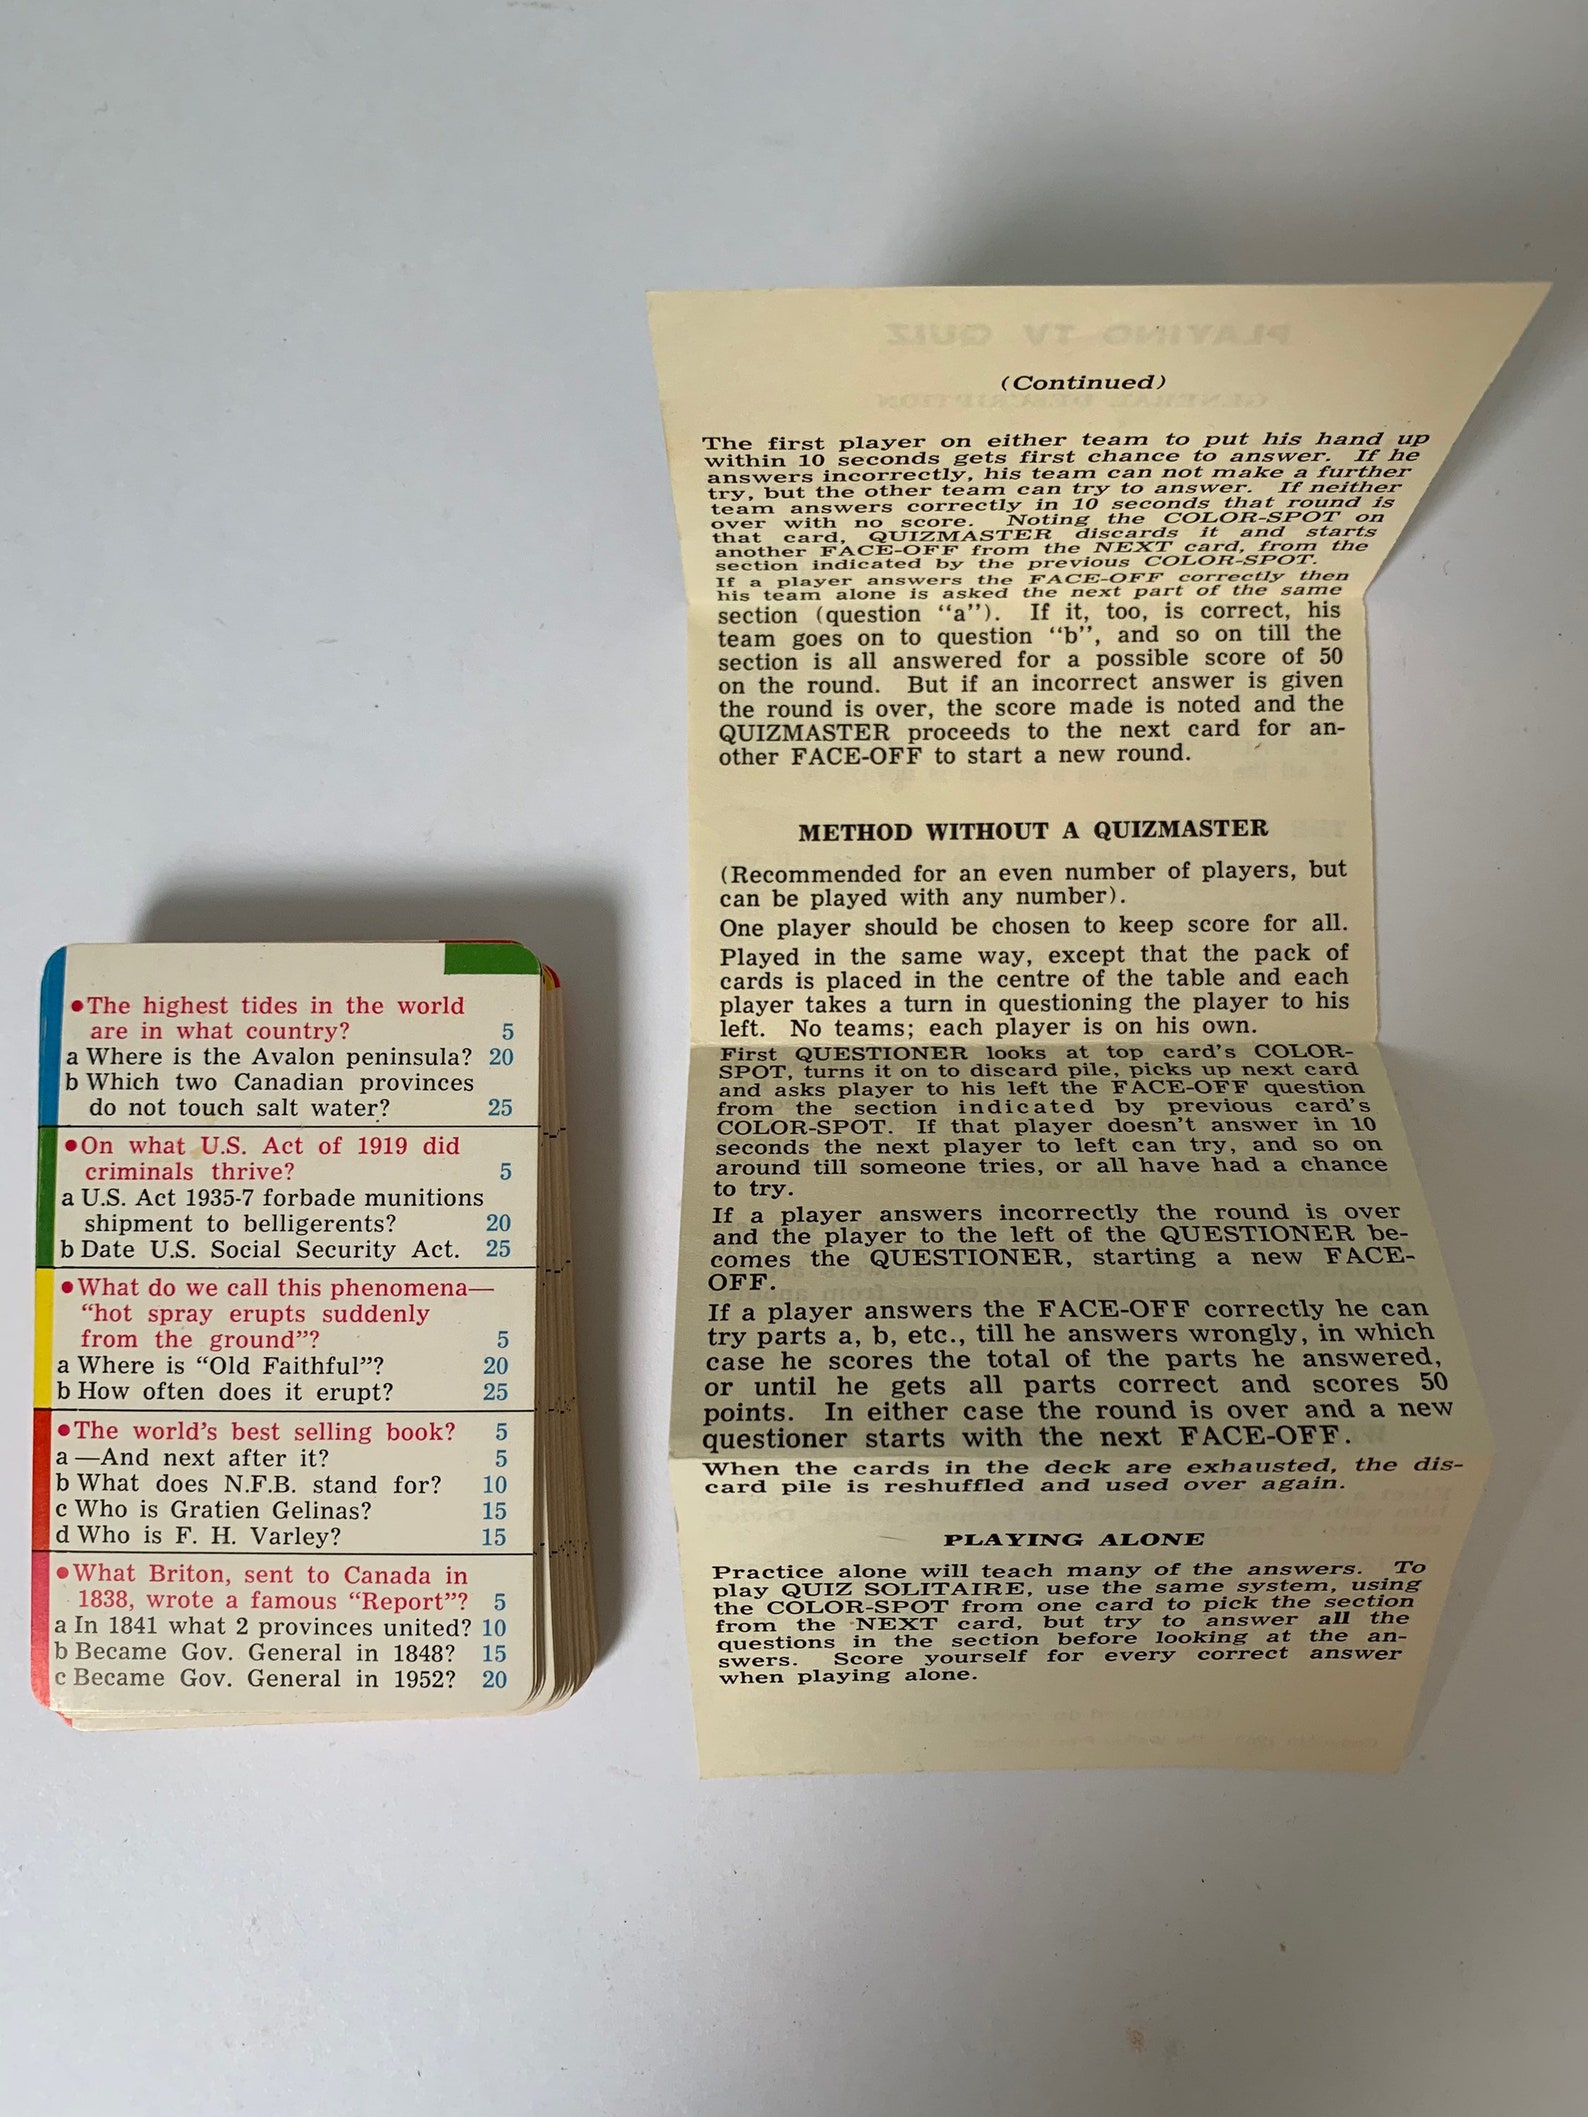 •The highest tides in the world
are in what country? 5
a Where is the Avalon peninsula? 20
b Which two Canadian provinces
do not touch salt water? 25
•On what U.S. Act of 1919 did
criminals thrive? 5
a U.S. Act 1935-7 forbade munitions
shipment to belligerents? 20
b Date U.S. Social Security Act. 25
•What do we call this phenomena—
“hot spray erupts suddenly
from the ground”? 5
a Where is “Old Faithful”? 20
b How often does it erupt? 25
•The world's best selling book? 5
a —And next after it? 5
b What does N.F.B. stand for? 10
c Who is Gratien Gelinas? 15
d Who is F. H. Varley? 15
•What Briton, sent to Canada in
1838, wrote a famous “Report”? 5
a In 1841 what 2 provinces united? 10
b Became Gov. General in 1848? 15
c Became Gov. General in 1952? 20
PLAYING TV QUIZ
GENERAL DESCRIPTION
(Continued)
The first player on either team to put his hand up
within 10 seconds gets first chance to answer. If he
answers incorrectly, his team can not make a further
try, but the other team can try to answer. If neither
team answers correctly in 10 seconds that round is
over with no score. Noting the COLOR-SPOT on
that card, QUIZMASTER discards it and starts
another FACE-OFF from the NEXT card, from the
section indicated by the previous COLOR-SPOT.
If a player answers the FACE-OFF correctly then
his team alone is asked the next part of the same
section (question “a”). If it, too, is correct, his
team goes on to question “b”, and so on till the
section is all answered for a possible score of 50
on the round. But if an incorrect answer is given
the round is over, the score made is noted and the
QUIZMASTER proceeds to the next card for an-
other FACE-OFF to start a new round.
METHOD WITHOUT A QUIZMASTER
(Recommended for an even number of players, but
can be played with any number).
One player should be chosen to keep score for all.
Played in the same way, except that the pack of
cards is placed in the centre of the table and each
player takes a turn in questioning the player to his
left. No teams; each player is on his own.
First QUESTIONER looks at top card's COLOR-
SPOT, turns it on to discard pile, picks up next card
and asks player to his left the FACE-OFF question
from the section indicated by previous card's
COLOR-SPOT. If that player doesn't answer in 10
seconds the next player to left can try, and so on
around till someone tries, or all have had a chance
to try.
If a player answers incorrectly the round is over
and the player to the left of the QUESTIONER be-
comes the QUESTIONER, starting a new FACE-
OFF.
If a player answers the FACE-OFF correctly he can
try parts a, b, etc., till he answers wrongly, in which
case he scores the total of the parts he answered,
or until he gets all parts correct and scores 50
points. In either case the round is over and a new
questioner starts with the next FACE-OFF.
When the cards in the deck are exhausted, the dis-
card pile is reshuffled and used over again.
PLAYING ALONE
Practice alone will teach many of the answers. To
play QUIZ SOLITAIRE, use the same system, using
the COLOR-SPOT from one card to pick the section
from the NEXT card, but try to answer all the
questions in the section before looking at the an-
swers. Score yourself for every correct answer
when playing alone.